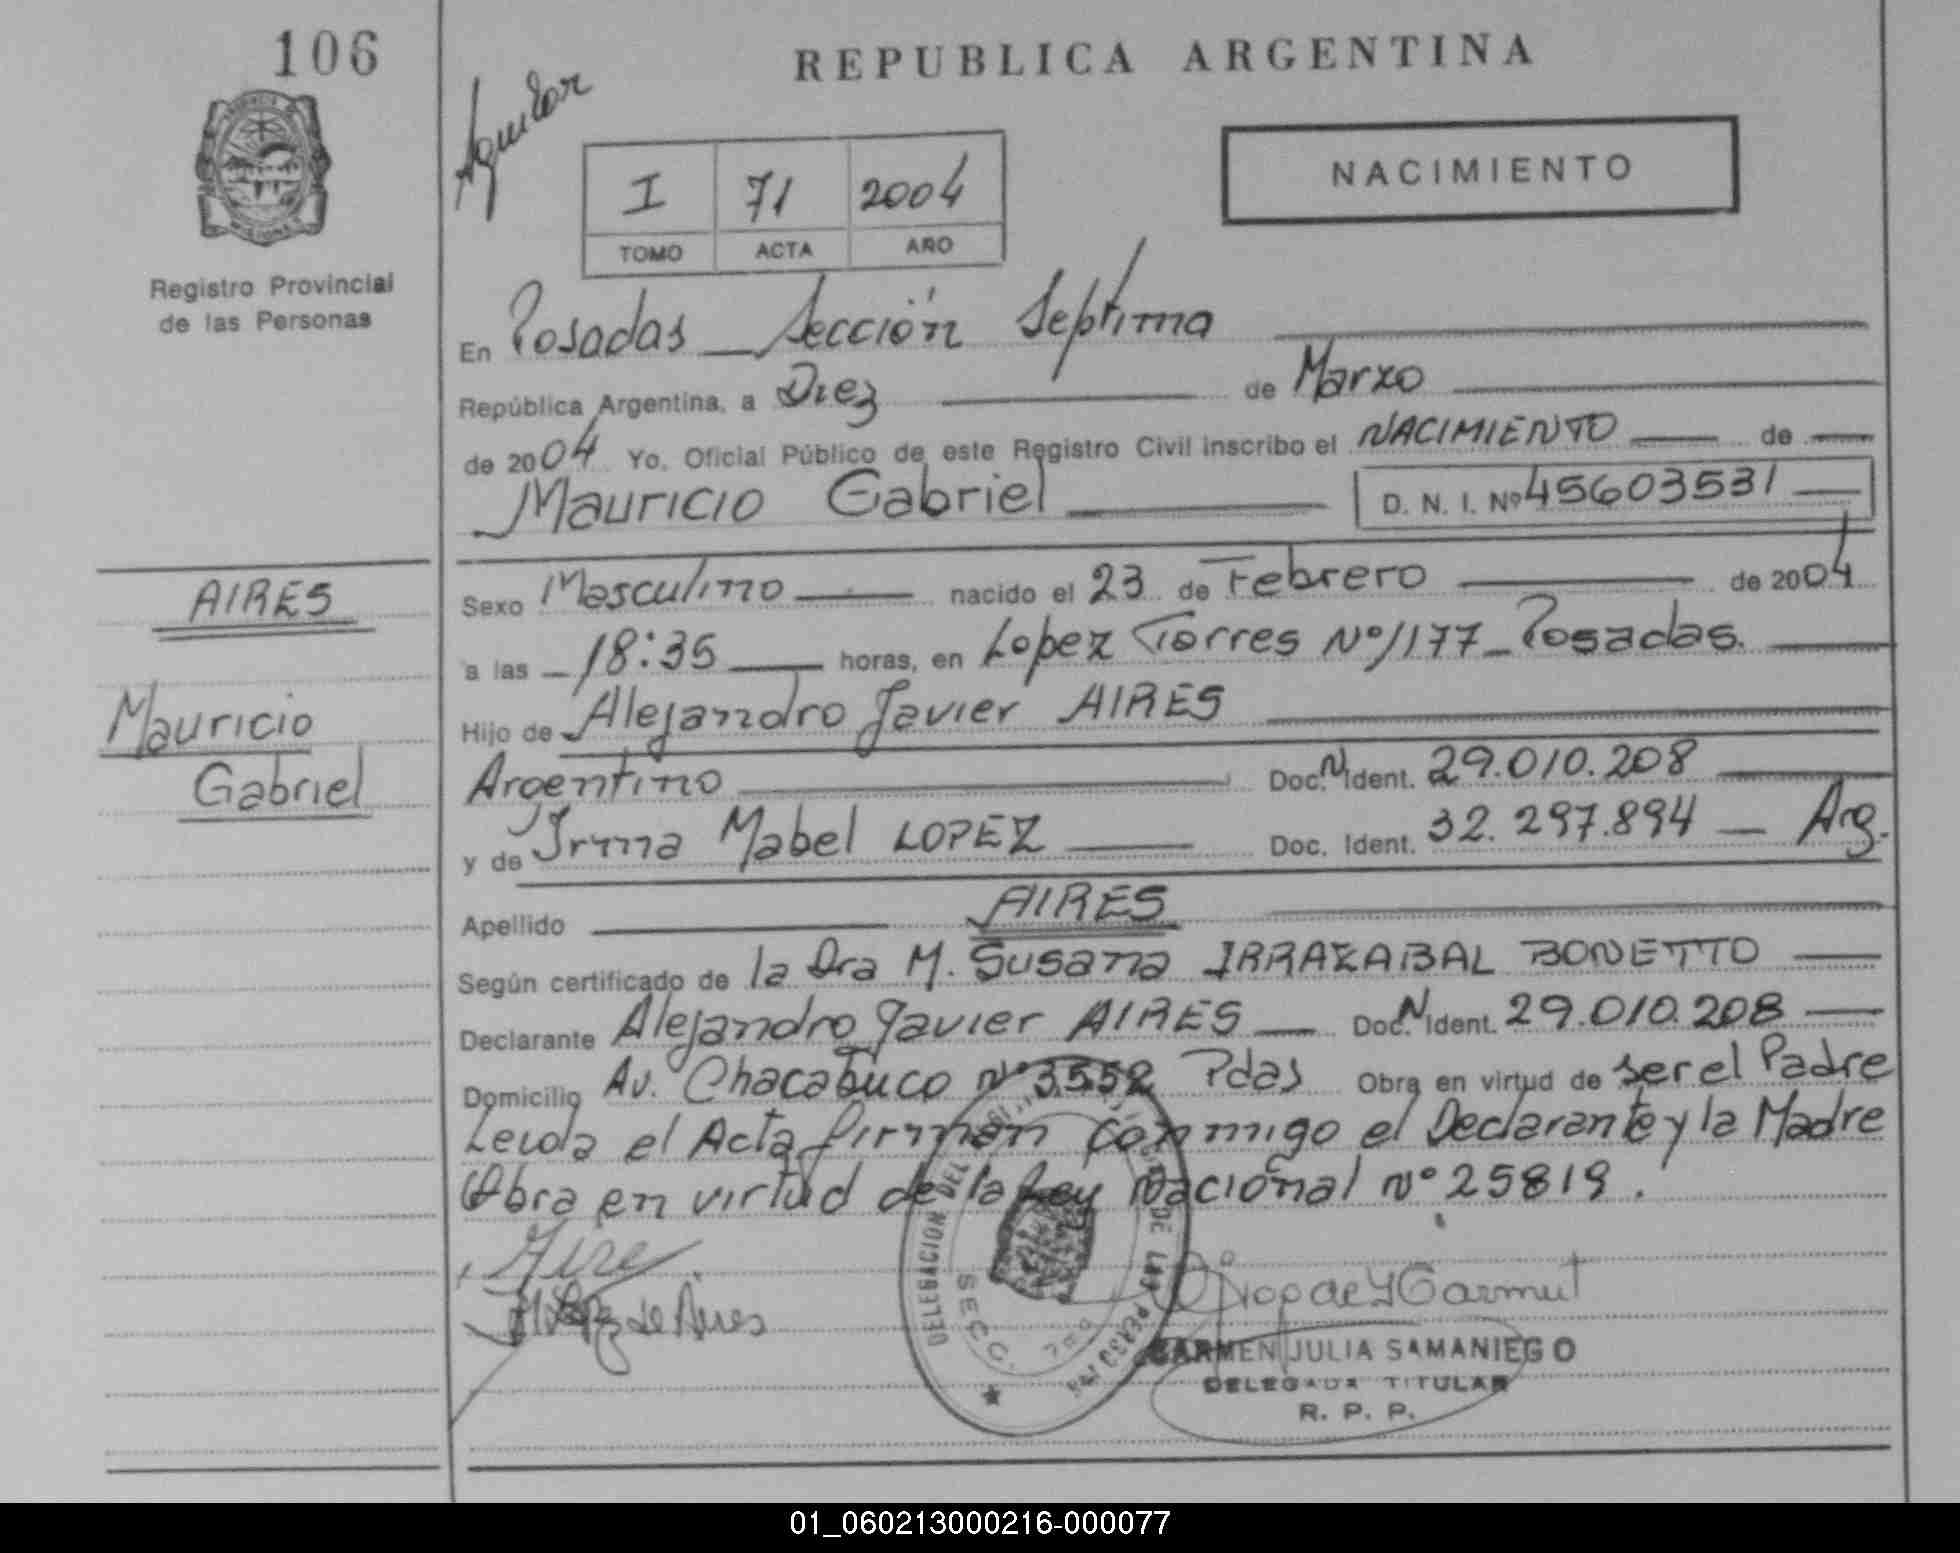 106
REPUBLICA ARGENTINA
Aguilar
I 71 2004
TOMO ACTA AÑO
NACIMIENTO
Registro Provincial
de las Personas
En Posadas _ Sección Septima
República Argentina, a Diez de Marzo
de 2004 Yo, Oficial Público de este Registro Civil inscribo el NACIMIENTO de
Mauricio Gabriel D. N. I. Nº 45603531
AIRES
Mauricio
Gabriel
Sexo Masculino nacido el 23 de Febrero de 2004
a las 18:35 horas, en Lopez Torres Nº 1177 _ Posadas.
Hijo de Alejandro Javier AIRES
Argentino Doc. N. Ident. 29.010.208
y de Irma Mabel LOPEZ Doc. Ident. 32.297.894 _ Arg.
Apellido AIRES
Según certificado de la Dra M. Susana IRRAZABAL BONETTO
Declarante Alejandro Javier AIRES Doc. N. Ident. 29.010.208
Domicilio Av. Chacabuco Nº 3552 Pdas Obra en virtud de ser el Padre
Leida el Acta firman conmigo el Declarante y la Madre
Obra en virtud de la Ley Nacional Nº 25819.
DELEGACION DEL DE LAS PERSONAS
SECC. 7ma
CARMEN JULIA SAMANIEGO
DELEGADA TITULAR
R. P. P.
01_060213000216-000077